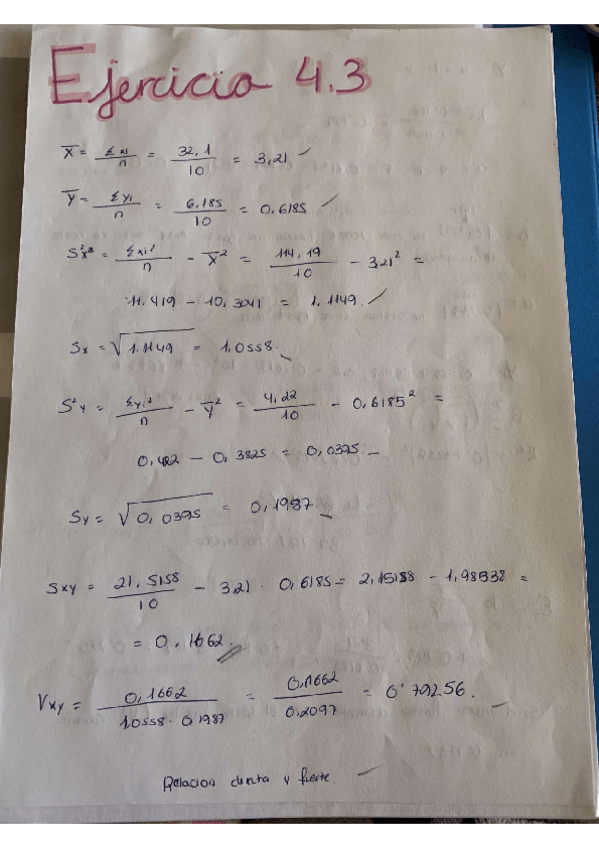 Ejercicio 4.3
X̄ = Σxi/n = 32,1/10 = 3,21
Ȳ = Σyi/n = 6,185/10 = 0,6185
S²x = Σxi²/n - X̄² = 114,19/10 - 3,21² =
11.419 - 10,3041 = 1,1149
Sx = √1.1149 = 1,0558
S²y = Σyi²/n - Ȳ² = 4,22/10 - 0,6185² =
0,422 - 0,3825 = 0,0395
Sy = √0,0395 = 0,1987
Sxy = 21,5158/10 - 3,21 · 0,6185 = 2,15158 - 1,98538 =
= 0,1662
Vxy = 0,1662/1.0558 · 0,1987 = 0,1662/0,2097 = 0'79256
Relacion directa y fuerte